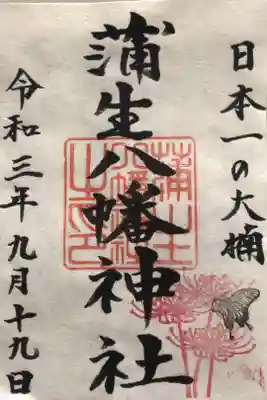 日本一の大楠
蒲生八幡神社
令和三年九月十九日
蒲生八幡神社之印